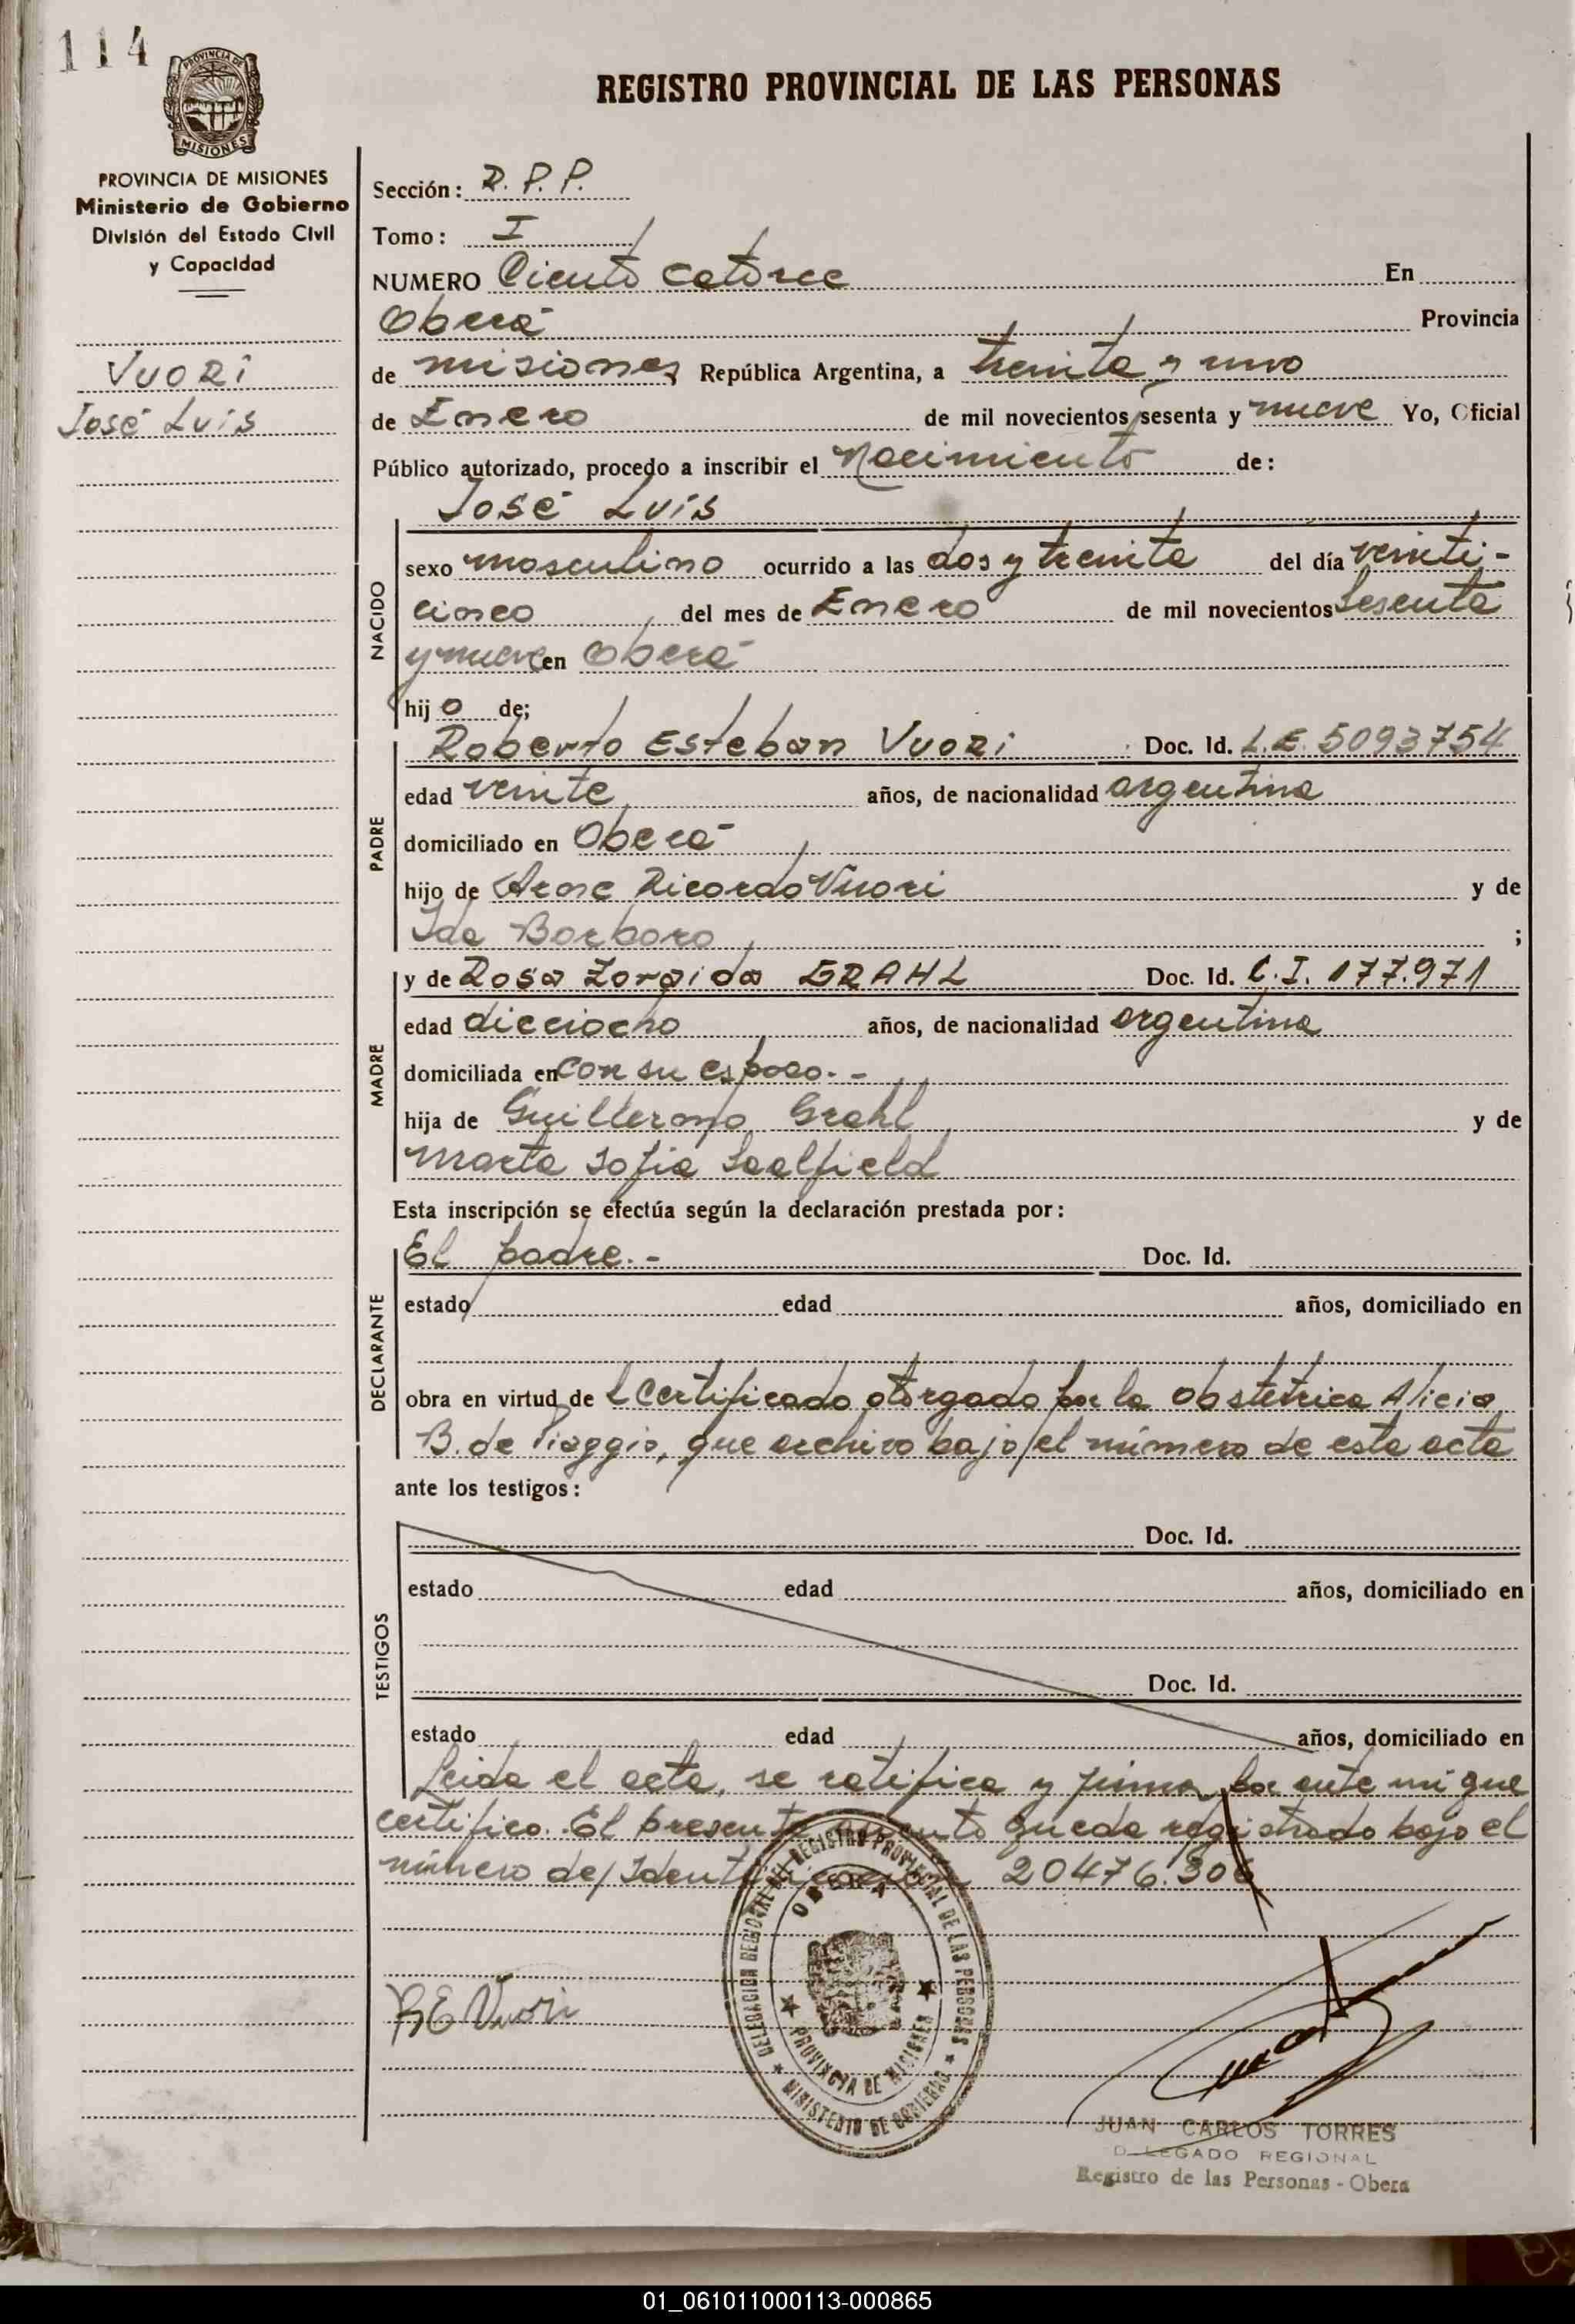 114
PROVINCIA DE
MISIONES
REGISTRO PROVINCIAL DE LAS PERSONAS
PROVINCIA DE MISIONES
Ministerio de Gobierno
División del Estado Civil
y Capacidad
VUORI
José Luis
Sección: R. P. P.
Tomo: I
NUMERO Ciento catorce En
Oberá Provincia
de misiones República Argentina, a treinta y uno
de Enero de mil novecientos sesenta y nueve Yo, Oficial
Público autorizado, procedo a inscribir el Nacimiento de:
José Luis
NACIDO
sexo masculino ocurrido a las dos y treinta del día veinti-
cinco del mes de Enero de mil novecientos sesenta
y nueve en Oberá
hijo de;
PADRE
Roberto Esteban Vuori Doc. Id. L.E. 5093754
edad veinte años, de nacionalidad argentina
domiciliado en Oberá
hijo de Arne Ricardo Vuori y de
Ida Borboro ;
MADRE
y de Rosa Zoraida GRAHL Doc. Id. C.I. 177.971
edad dieciocho años, de nacionalidad argentina
domiciliada en con su esposo.-
hija de Guillermo Grahl y de
Marta Sofia Saalfield
Esta inscripción se efectúa según la declaración prestada por:
DECLARANTE
El padre.- Doc. Id.
estado edad años, domiciliado en
obra en virtud de l certificado otorgado por la obstetrica Alicia
B. de Piaggio, que archivo bajo el número de esta acta
ante los testigos:
TESTIGOS
Doc. Id.
estado edad años, domiciliado en
Doc. Id.
estado edad años, domiciliado en
Leida el acta, se ratifica y firma por ante mi que
certifico. El presente asiento queda registrado bajo el
número de Identificación 20476.306
DELEGACION REGIONAL DEL REGISTRO PROVINCIAL DE LAS PERSONAS
OBERA
PROVINCIA DE MISIONES
MINISTERIO DE GOBIERNO
R E Vuori
JUAN CARLOS TORRES
D LEGADO REGIONAL
Registro de las Personas - Obera
01_061011000113-000865